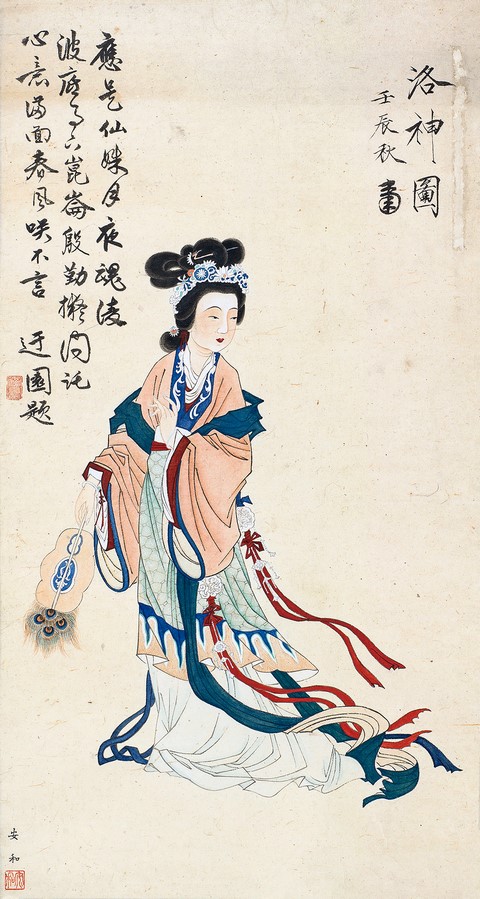 洛神圖
壬辰秋 畫
應是仙姝月夜魂凌
波底事下崑崙殷勤擬問託
心意滿面春風咲不言 迂園題
安和